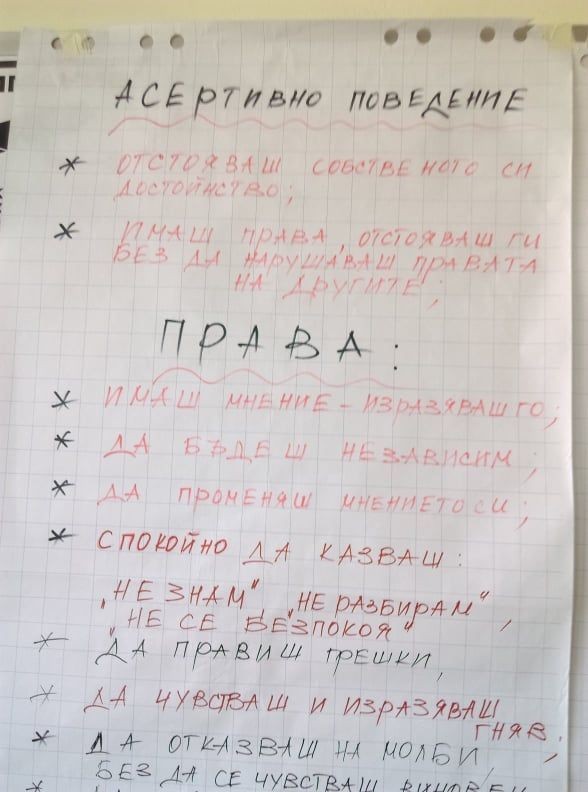 АСЕРТИВНО ПОВЕДЕНИЕ
* ОТСТОЯВАШ СОБСТВЕНОТО СИ
ДОСТОЙНСТВО;
* ИМАШ ПРАВА, ОТСТОЯВАШ ГИ
БЕЗ ДА НАРУШАВАШ ПРАВАТА
НА ДРУГИТЕ;
ПРАВА:
* ИМАШ МНЕНИЕ - ИЗРАЗЯВАШ ГО;
* ДА БЪДЕШ НЕЗАВИСИМ;
* ДА ПРОМЕНЯШ МНЕНИЕТО СИ;
* СПОКОЙНО ДА КАЗВАШ:
„НЕ ЗНАМ", „НЕ РАЗБИРАМ",
„НЕ СЕ БЕЗПОКОЯ"
* ДА ПРАВИШ ГРЕШКИ,
* ДА ЧУВСТВАШ И ИЗРАЗЯВАШ
ГНЯВ;
* ДА ОТКАЗВАШ НА МОЛБИ,
БЕЗ ДА СЕ ЧУВСТВАШ ВИНОВЕН